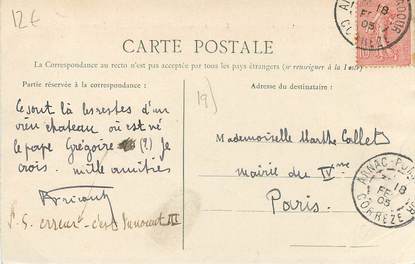 12€
CARTE POSTALE
La Correspondance au recto n'est pas acceptée par tous les pays étrangers (se renseigner à la Poste)
Partie réservée à la correspondance :
Adresse du destinataire :
19)
ce sont là les restes d'un
vieu chateau où est né
le pape Grégoire (?) Je
crois. mille amitiés
P.S. erreur c'est Innocent
Mademoiselle Marthe Collet
Mairie du IVme
Paris.
ARNAC-POMPADOUR
18
FEVR
05
CORREZE
ARNAC-POMPADOUR
18
FEVR
05
CORREZE